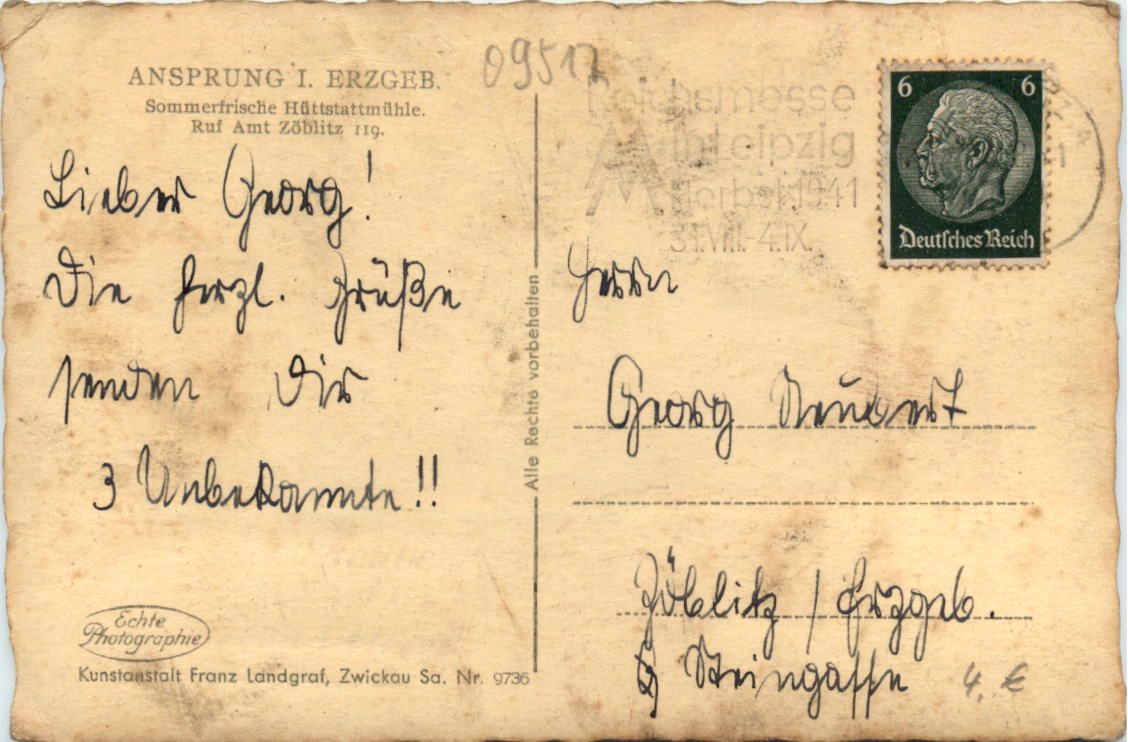 ANSPRUNG I. ERZGEB.
Sommerfrische Hüttstattmühle.
Ruf Amt Zöblitz 119.
09517
Reichsmesse
in Leipzig
Herbst 1941
31.VIII.-4.IX.
6 6
Deutsches Reich
Lieber Georg!
Die herzl. Grüße
senden Dir
3 Unbekannte!!
Alle Rechte vorbehalten
Herrn
Georg Neubert
Zöblitz / Erzgeb.
Steingasse
4,- €
Echte
Photographie
Kunstanstalt Franz Landgraf, Zwickau Sa. Nr. 9736